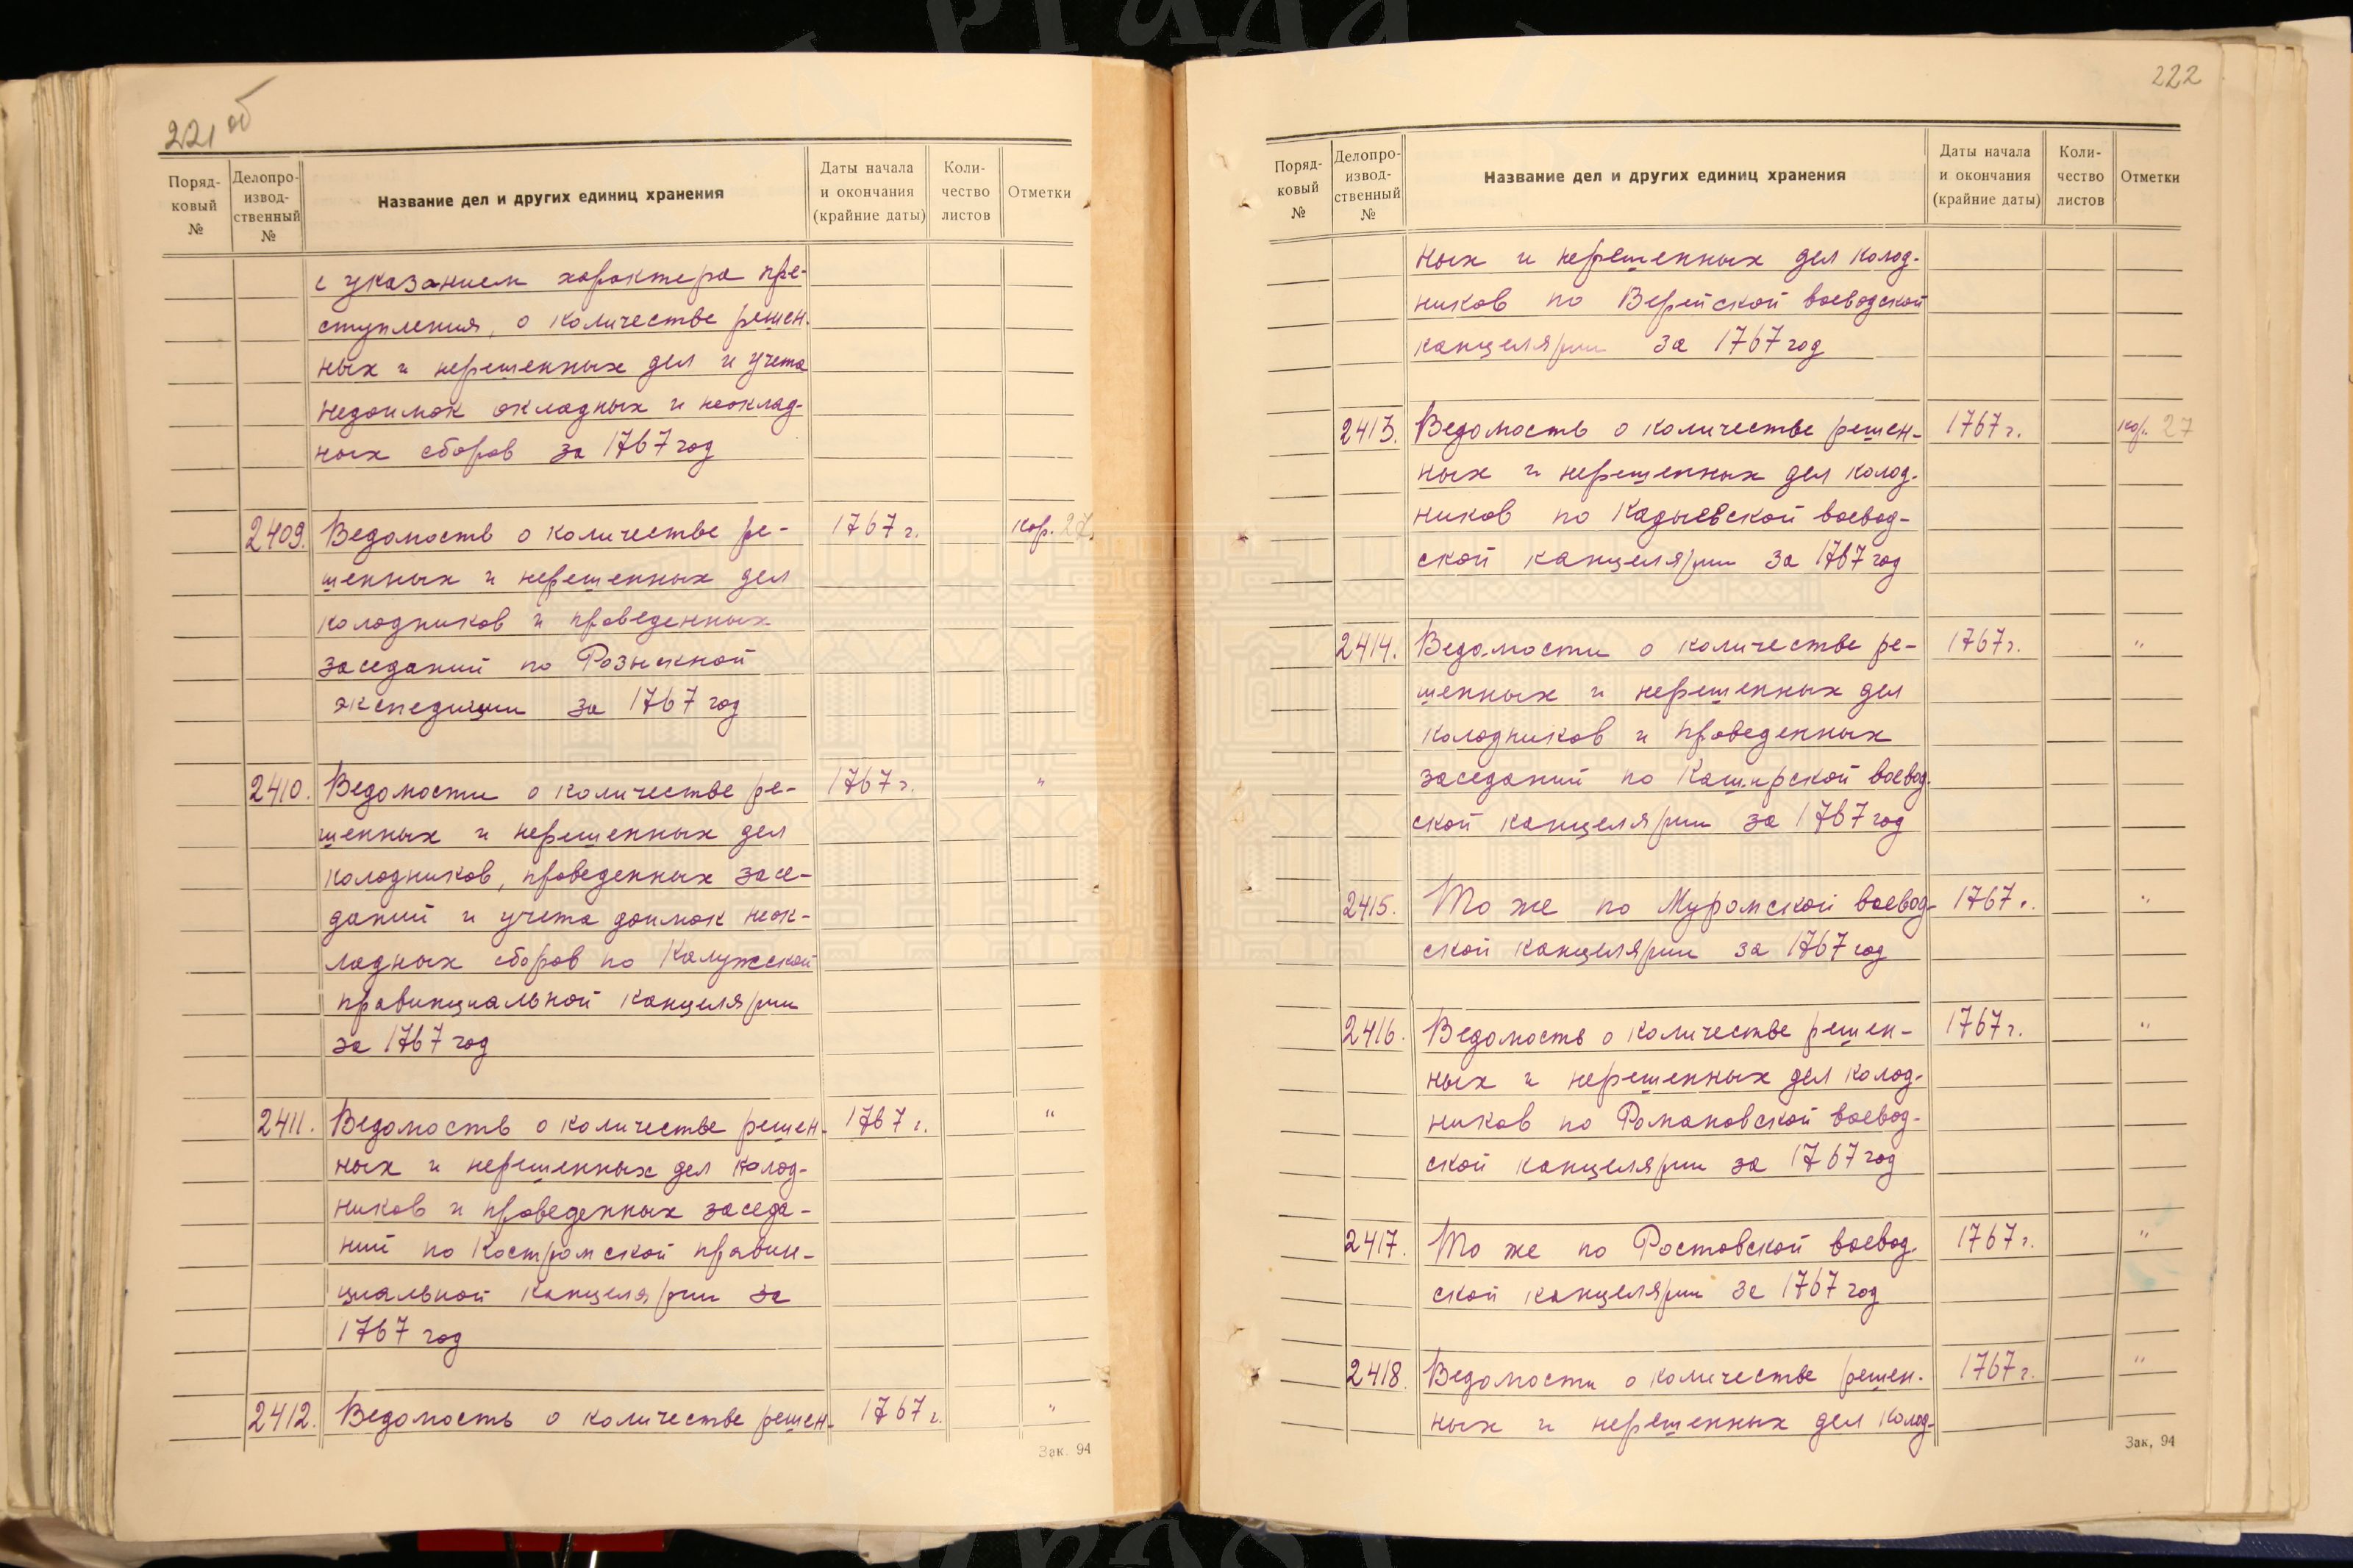 221 об
Поряд-
ковый
№
Делопро-
извод-
ственный
№
Название дел и других единиц хранения
Даты начала
и окончания
(крайние даты)
Коли-
чество
листов
Отметки
с указанием характера пре-
ступления, о количестве решен-
ных и нерешенных дел и учета
недоимок окладных и неоклад-
ных сборов за 1767 год
2409. Ведомость о количестве ре- 1767 г. кор. 27
шенных и нерешенных дел
колодников и проведенных
заседаний по Розыскной
экспедиции за 1767 год
2410. Ведомости о количестве ре- 1767 г. "
шенных и нерешенных дел
колодников, проведенных засе-
даний и учета доимок неок-
ладных сборов по Калужской
провинциальной канцелярии
за 1767 год
2411. Ведомость о количестве решен- 1767 г. "
ных и нерешенных дел колод-
ников и проведенных заседа-
ний по Костромской провин-
циальной канцелярии за
1767 год
2412. Ведомость о количестве решен- 1767 г. "
Зак. 94
222
Поряд-
ковый
№
Делопро-
извод-
ственный
№
Название дел и других единиц хранения
Даты начала
и окончания
(крайние даты)
Коли-
чество
листов
Отметки
ных и нерешенных дел колод-
ников по Верейской воеводской
канцелярии за 1767 год
2413. Ведомость о количестве решен- 1767 г. кор. 27
ных и нерешенных дел колод-
ников по Кадыевской воевод-
ской канцелярии за 1767 год
2414. Ведомости о количестве ре- 1767 г. "
шенных и нерешенных дел
колодников и проведенных
заседаний по Каширской воевод-
ской канцелярии за 1767 год
2415. То же по Муромской воевод- 1767 г. "
ской канцелярии за 1767 год
2416. Ведомость о количестве решен- 1767 г. "
ных и нерешенных дел колод-
ников по Романовской воевод-
ской канцелярии за 1767 год
2417. То же по Ростовской воевод- 1767 г. "
ской канцелярии за 1767 год
2418. Ведомости о количестве решен- 1767 г. "
ных и нерешенных дел колод-
Зак. 94